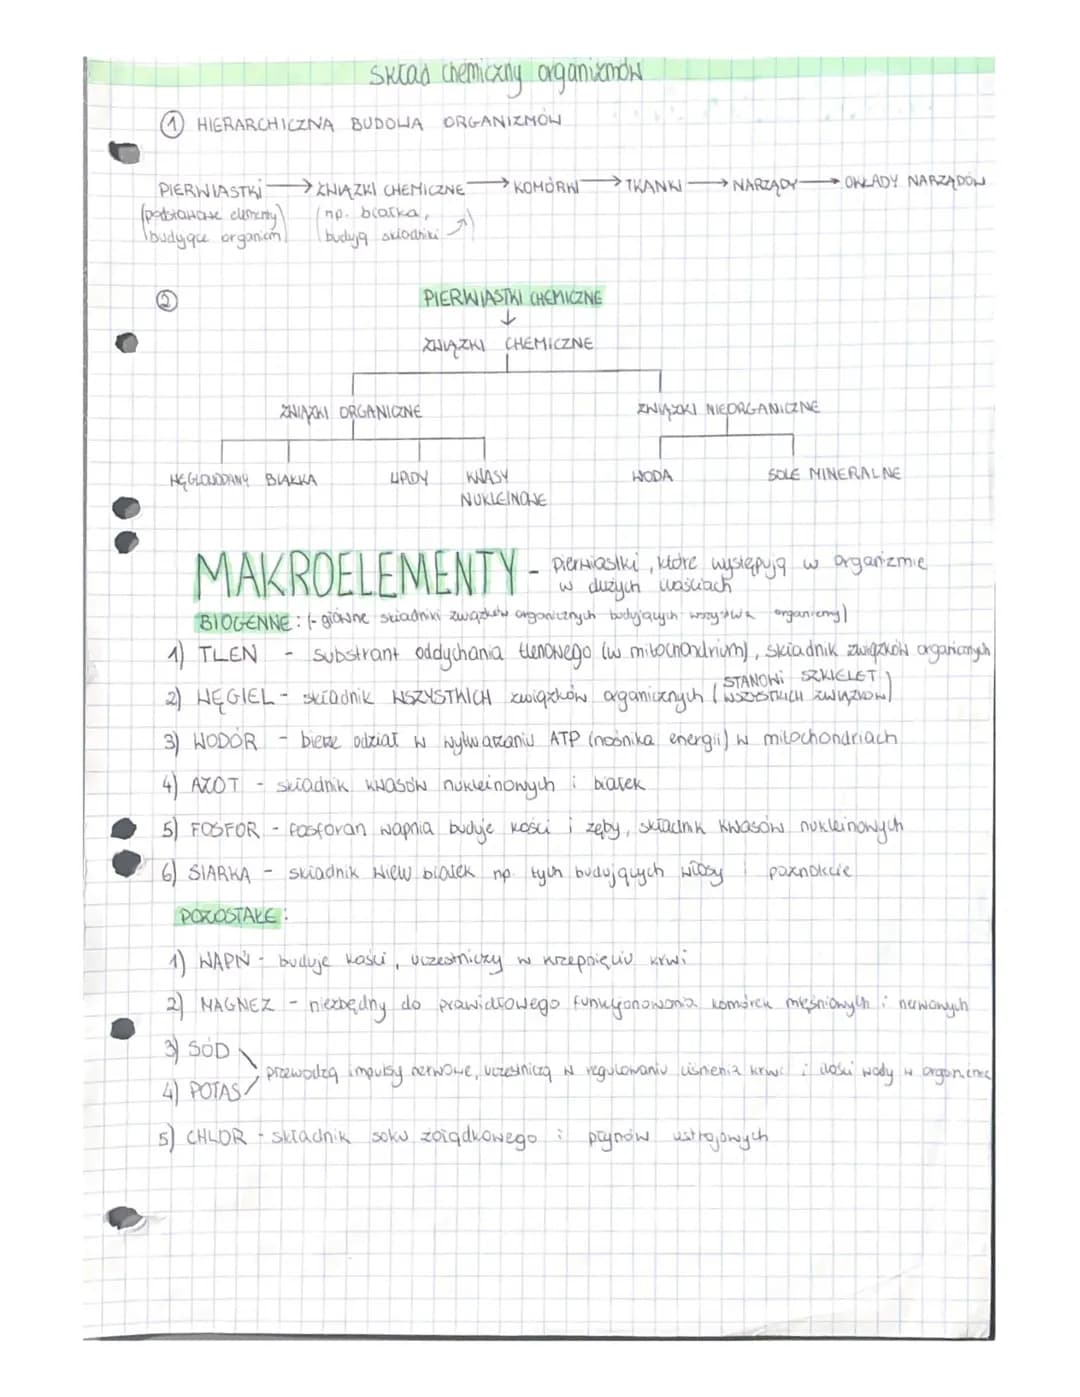 Skład chemiczny organizmów
① HIERARCHICZNA BUDOWA ORGANIZMÓW
PIERWIASTKI → ZWIĄZKI CHEMICZNE → KOMÓRKI → TKANKI → NARZĄDY → UKŁADY NARZĄDÓW
(podstawowe elementy budujące organizm)
(np. białka, budują składniki →)
②
PIERWIASTKI CHEMICZNE
↓
ZWIĄZKI CHEMICZNE
ZWIĄZKI ORGANICZNE ZWIĄZKI NIEORGANICZNE
WĘGLOWODANY BIAŁKA LIPIDY KWASY NUKLEINOWE WODA SOLE MINERALNE
MAKROELEMENTY - pierwiastki, które występują w organizmie
w dużych ilościach
BIOGENNE: (- główne składniki związków organicznych budujących wszystkie organizmy)
1) TLEN - substrant oddychania tlenowego (w mitochondrium), składnik związków organicznych
2) WĘGIEL - składnik WSZYSTKICH związków organicznych (STANOWI SZKIELET WSZYSTKICH ZWIĄZKÓW)
3) WODÓR - bierze odział w wytwarzaniu ATP (nośnika energii) w mitochondriach
4) AZOT - składnik kwasów nukleinowych i białek
5) FOSFOR - fosforan wapnia buduje kości i zęby, składnik kwasów nukleinowych
6) SIARKA - składnik wielu białek np. tych budujących włosy i paznokcie
POZOSTAŁE:
1) WAPŃ - buduje kości, uczestniczy w krzepnięciu krwi
2) MAGNEZ - niezbędny do prawidłowego funkcjonowania komórek mięśniowych i nerwowych
3) SÓD
przewodzą impulsy nerwowe, uczestniczą w regulowaniu ciśnienia krwi i ilości wody w organizmie
4) POTAS
5) CHLOR - składnik soku żołądkowego i płynów ustrojowych